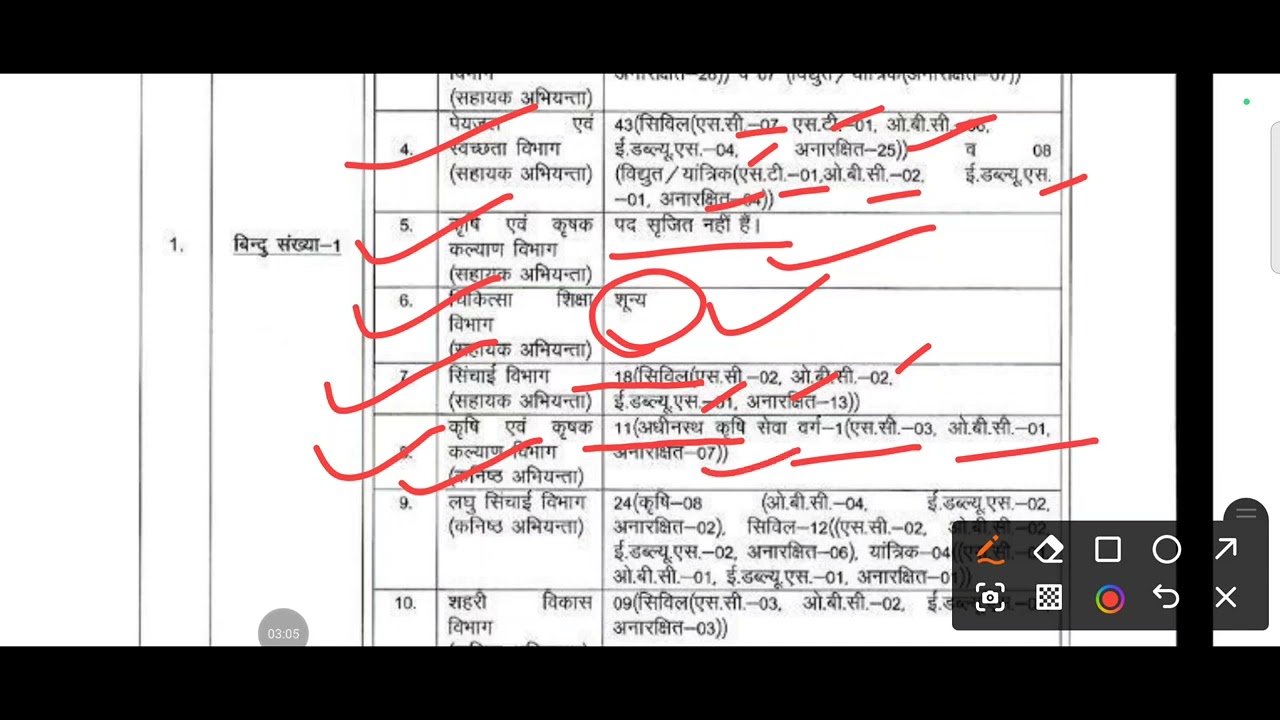 (सहायक अभियन्ता)
4. पेयजल एवं 43(सिविल(एस.सी.–07, एस.टी.–01, ओ.बी.सी.–
स्वच्छता विभाग ई.डब्ल्यू.एस.–04, अनारक्षित–25)) व 08
(सहायक अभियन्ता) (विद्युत/यांत्रिक(एस.टी.–01,ओ.बी.सी.–02, ई.डब्ल्यू.एस.
–01, अनारक्षित–04))
5. कृषि एवं कृषक पद सृजित नहीं हैं।
1. बिन्दु संख्या–1 कल्याण विभाग
(सहायक अभियन्ता)
6. चिकित्सा शिक्षा शून्य
विभाग
(सहायक अभियन्ता)
7. सिंचाई विभाग 18(सिविल(एस.सी.–02, ओ.बी.सी.–02,
(सहायक अभियन्ता) ई.डब्ल्यू.एस.–01, अनारक्षित–13))
कृषि एवं कृषक 11(अधीनस्थ कृषि सेवा वर्ग–1(एस.सी.–03, ओ.बी.सी.–01,
8. कल्याण विभाग अनारक्षित–07))
(कनिष्ठ अभियन्ता)
9. लघु सिंचाई विभाग 24(कृषि–08 (ओ.बी.सी.–04, ई.डब्ल्यू.एस.–02,
(कनिष्ठ अभियन्ता) अनारक्षित–02), सिविल–12((एस.सी.–02, ओ.बी.सी.–02,
ई.डब्ल्यू.एस.–02, अनारक्षित–06), यांत्रिक–04((
ओ.बी.सी.–01, ई.डब्ल्यू.एस.–01, अनारक्षित–01))
10. शहरी विकास 09(सिविल(एस.सी.–03, ओ.बी.सी.–02,
विभाग अनारक्षित–03))
03:05